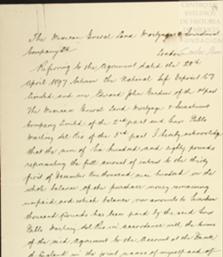 The Mexican General Land Mortgage & Investment
Company Ld.
London
Referring to the Agreement dated the 28th
April 1897 between the National Life Deposit Co
Limited and me Edward John Gardner of the 1st part
The Mexican General Land Mortgage & Investment
Company Limited of the 2nd part and Louis Pablo
of the 3rd part I hereby acknowledge
that the sum of Six hundred and eighty pounds
representing the full amount of interest to the thirty
first of December One thousand nine hundred on the
whole balance of the purchase money remaining
unpaid and which balance now amounts to
thousand pounds has been paid by the said Louis
Pablo in accordance with the terms
of the said Agreement to the Account at the Bank
of England in the joint names of myself and of